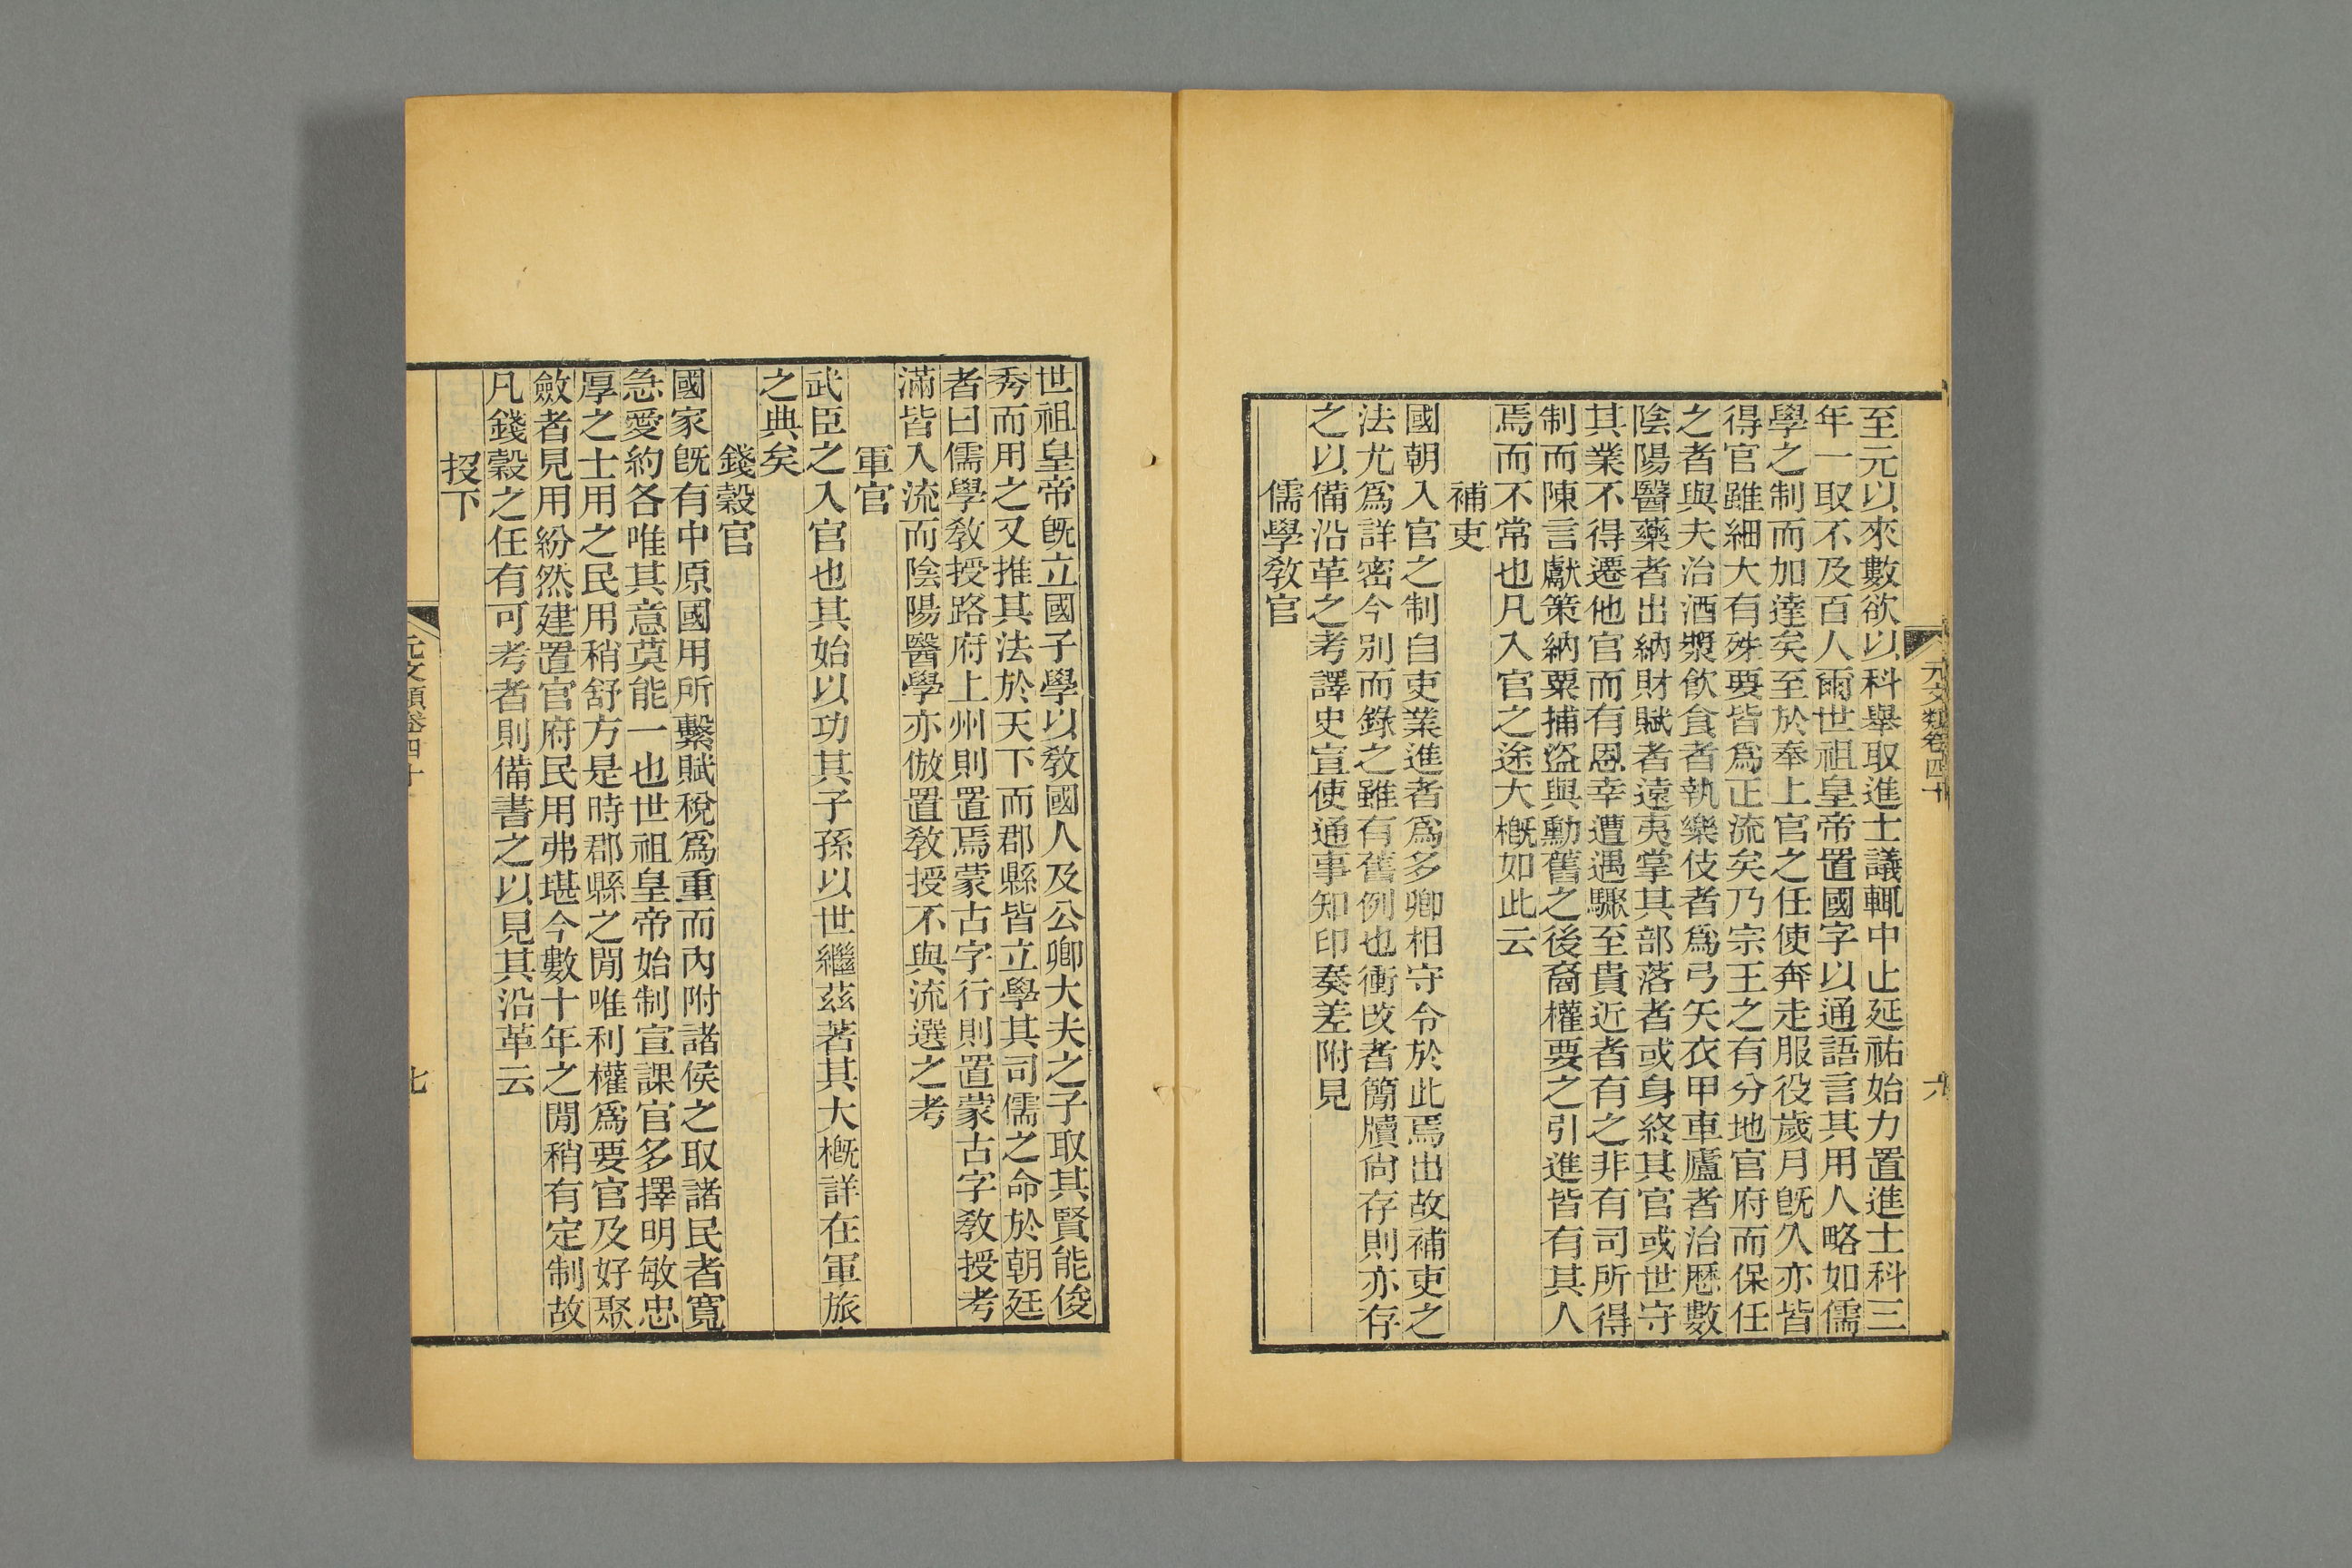 元文類卷四十
六
至元以來數欲以科舉取進士議輒中止延祐始力置進士科三
年一取不及百人爾世祖皇帝置國字以通語言其用人略如儒
學之制而加達矣至於奉上官之任使奔走服役歲月旣久亦皆
得官雖細大有殊要皆爲正流矣乃宗王之有分地官府而保任
之者與夫治酒漿飮食者執樂伎者爲弓矢衣甲車廬者治曆數
陰陽醫藥者出納財賦者遠夷掌其部落者或身終其官或世守
其業不得遷他官而有恩幸遭遇驟至貴近者有之非有司所得
制而陳言獻策納粟捕盜與勳舊之後裔權要之引進皆有其人
焉而不常也凡入官之途大槪如此云
補吏
國朝入官之制自吏業進者爲多卿相守令於此焉出故補吏之
法尤爲詳密今別而錄之雖有舊例也衝改者簡牘尙存則亦存
之以備沿革之考譯史宣使通事知印奏差附見
儒學敎官
世祖皇帝旣立國子學以敎國人及公卿大夫之子取其賢能俊
秀而用之又推其法於天下而郡縣皆立學其司儒之命於朝廷
者曰儒學敎授路府上州則置焉蒙古字行則置蒙古字敎授考
滿皆入流而陰陽醫學亦倣置敎授不與流選之考
軍官
武臣之入官也其始以功其子孫以世繼茲著其大槪詳在軍旅
之典矣
錢穀官
國家旣有中原國用所繫賦稅爲重而內附諸侯之取諸民者寬
急愛約各唯其意莫能一也世祖皇帝始制宣課官多擇明敏忠
厚之士用之民用稍舒方是時郡縣之閒唯利權爲要官及好聚
斂者見用紛然建置官府民用弗堪今數十年之閒稍有定制故
凡錢穀之任有可考者則備書之以見其沿革云
投下
元文類卷四十
七